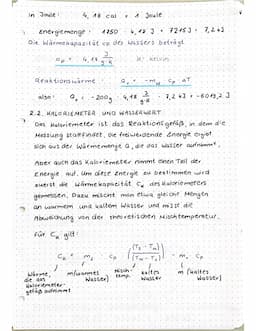 in Joule: 4,18 cal = 1 Joule
Energiemenge: 1750 · 4,18 J = 7215 J = 7,2 kJ
Die Wärmekapazität cp des Wassers beträgt
cp = 4,18 J/g·K K: Kelvin
Reaktionswärme: Qr = -mw cp ΔT
also: Qr = -200g · 4,18 J/g·K
2.2. KALORIEMETER UND WASSERWERT
Das Kaloriemeter ist das Reaktionsgefäß, in dem die
Messung stattfindet. Die freiwerdende Energie ergibt
sich aus der Wärmemenge Q, die das Wasser aufnimmt.
Aber auch das Kaloriemeter nimmt einen Teil der
Energie auf. Um diese Energie zu bestimmen wird
zuerst die Wärmekapazität CK des Kaloriemeters
gemessen. Dazu mischt man etwa gleiche Mengen
an warmem und kaltem Wasser und misst die
Abweichung von der theoretischen Mischtemperatur.
Für CK gilt:
CK = m2 cp - m1 cp
Wärme, die das Kaloriemeter-gefäß aufnimmt
m (warmes Wasser)
Misch-temp.
kaltes Wasser
m (kaltes Wasser)